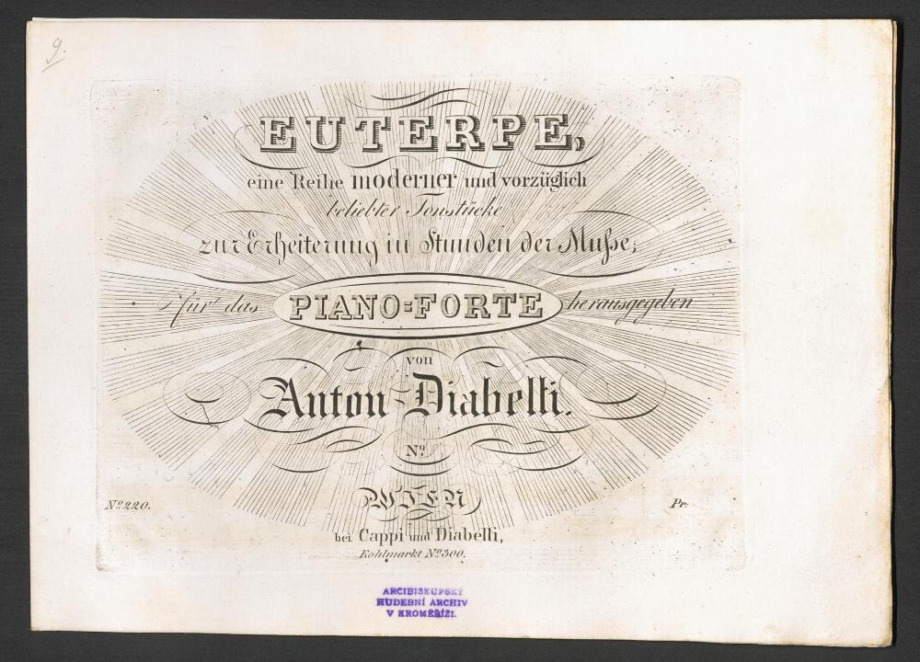 9.
EUTERPE,
eine Reihe moderner und vorzüglich
beliebter Tonstücke
zur Erheiterung in Stunden der Muſse,
für das PIANO=FORTE herausgegeben
von
Anton Diabelli.
No.
WIEN
No. 220. Pr.
bei Cappi und Diabelli,
Kohlmarkt No. 300.
ARCIBISKUPSKÝ
HUDEBNÍ ARCHIV
V KROMĚŘÍŽI.